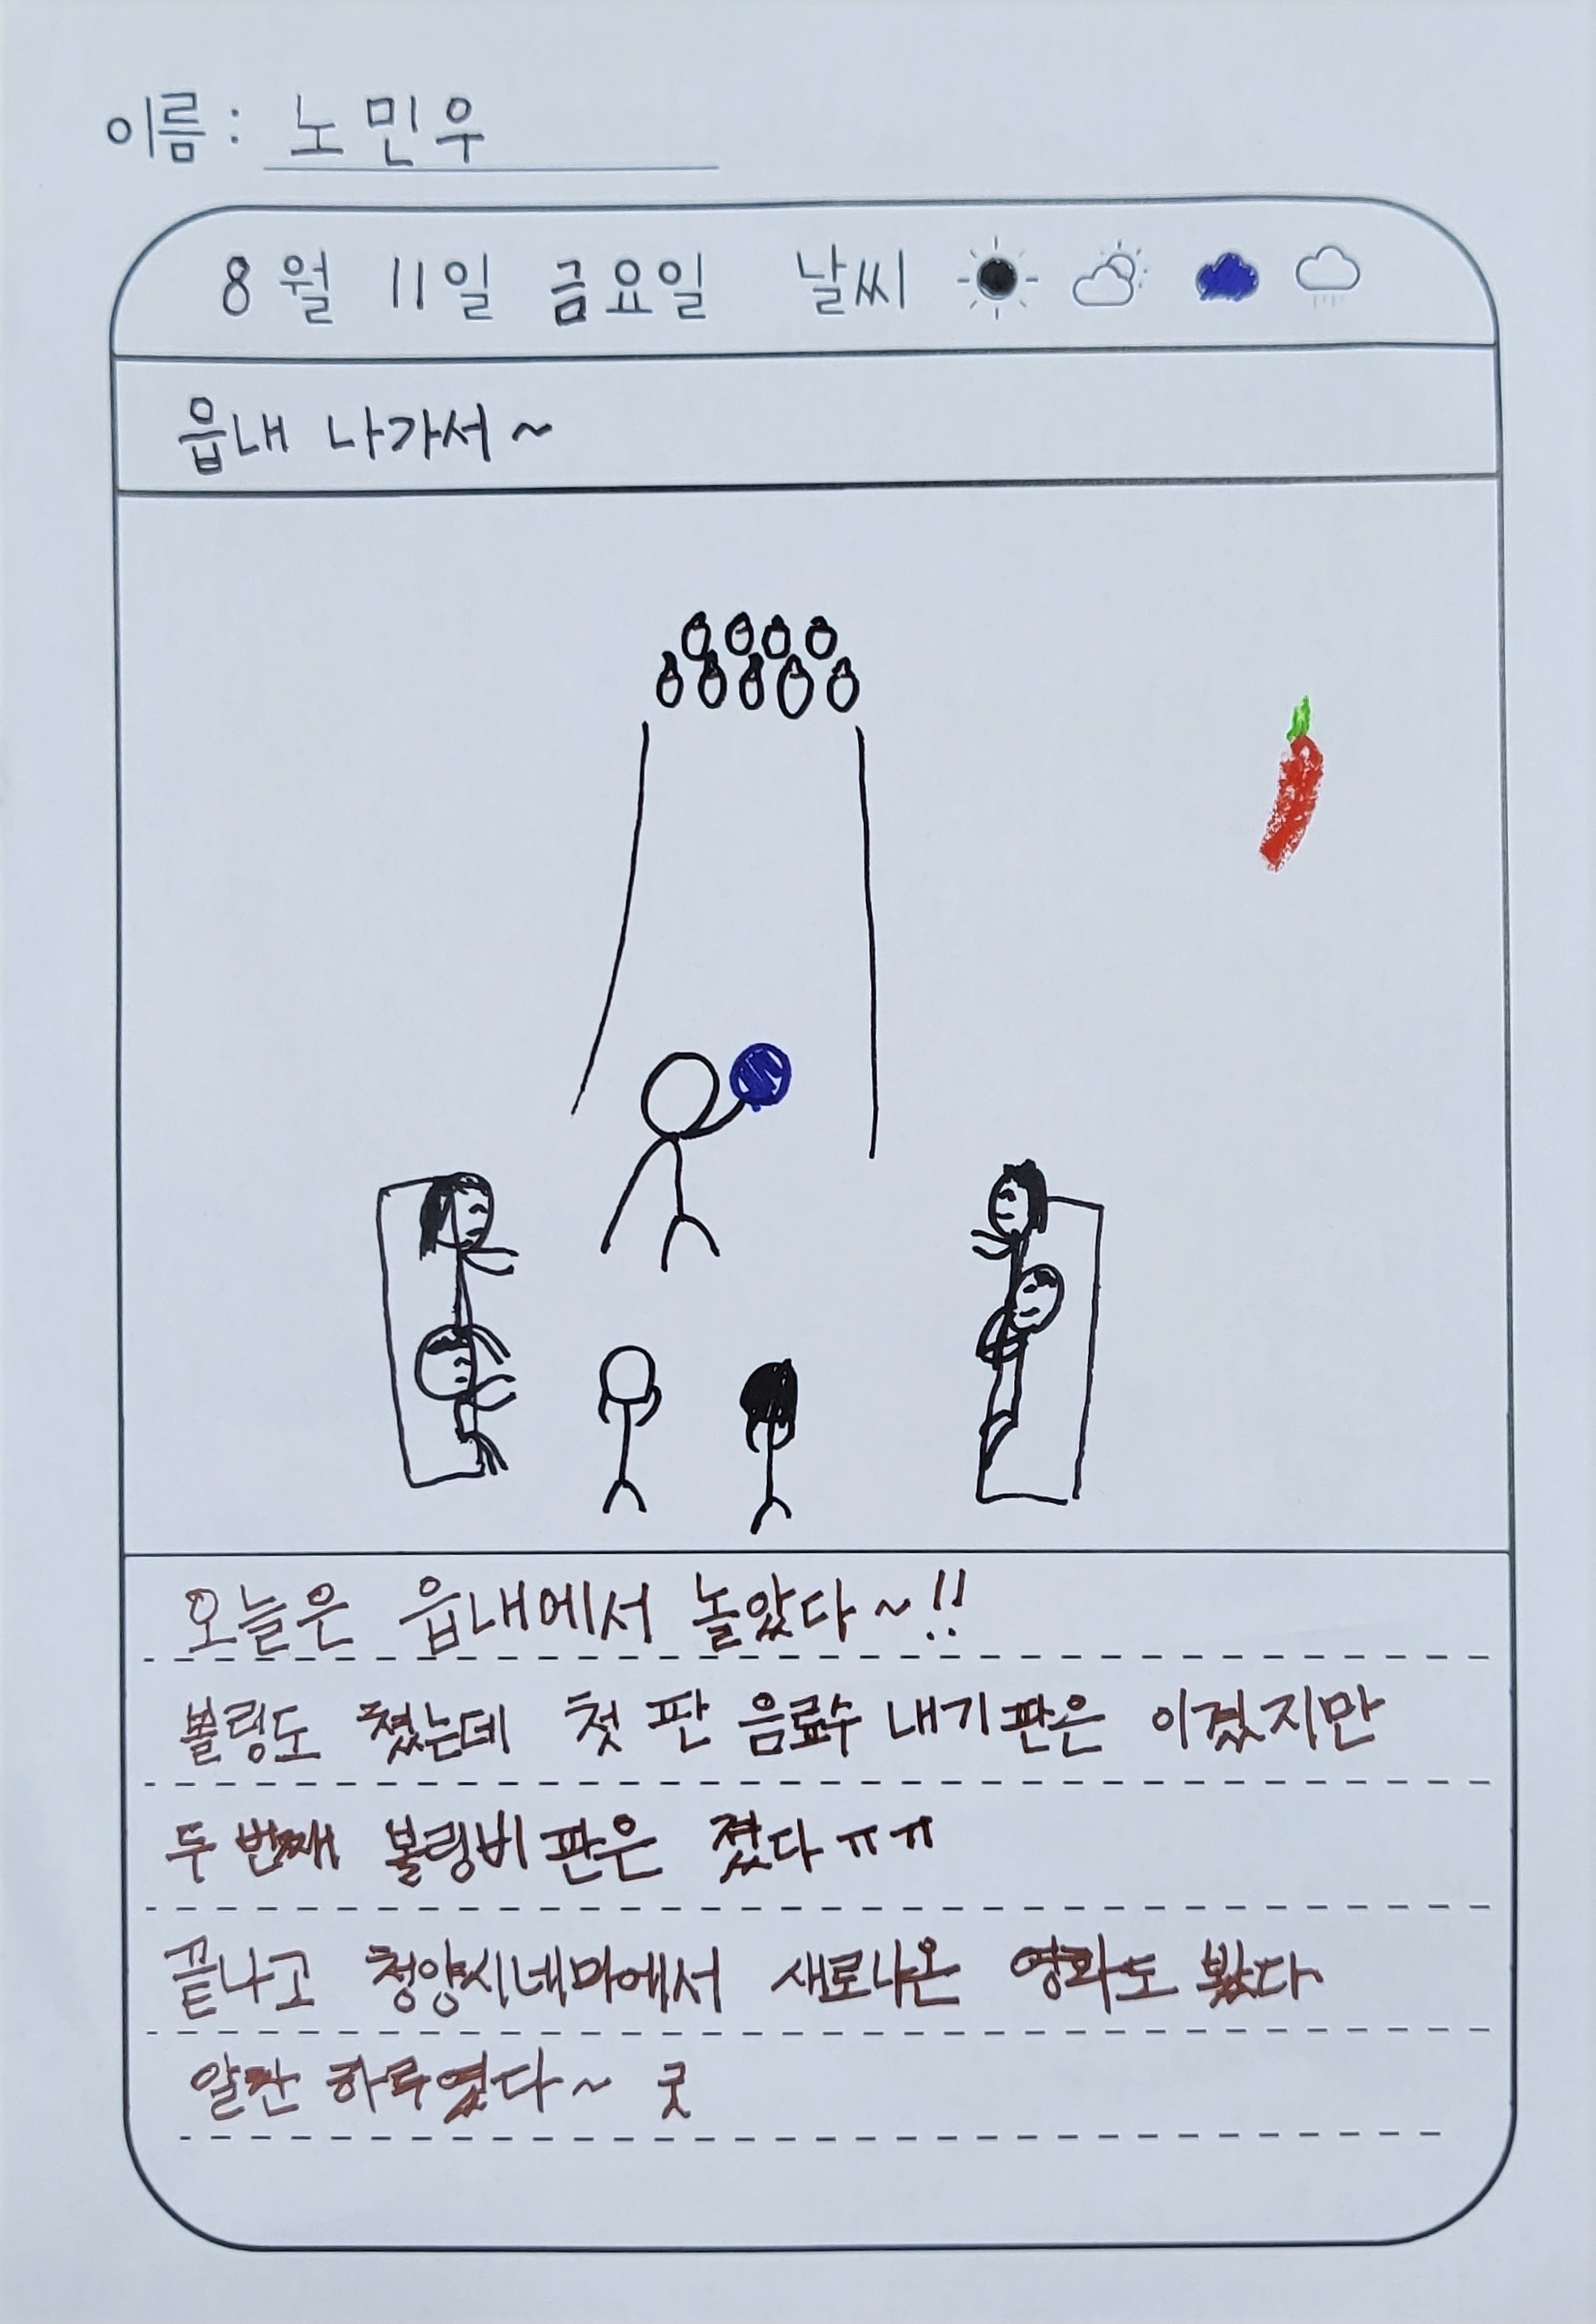 이름: 노민우
8월 11일 금요일 날씨
읍내 나가서~
오늘은 읍내에서 놀았다~!!
볼링도 쳤는데 첫 판 음료수 내기판은 이겼지만
두 번째 볼링비 판은 졌다ㅠㅠ
끝나고 청양시네마에서 새로나온 영화도 봤다
알찬 하루였다~ 굿